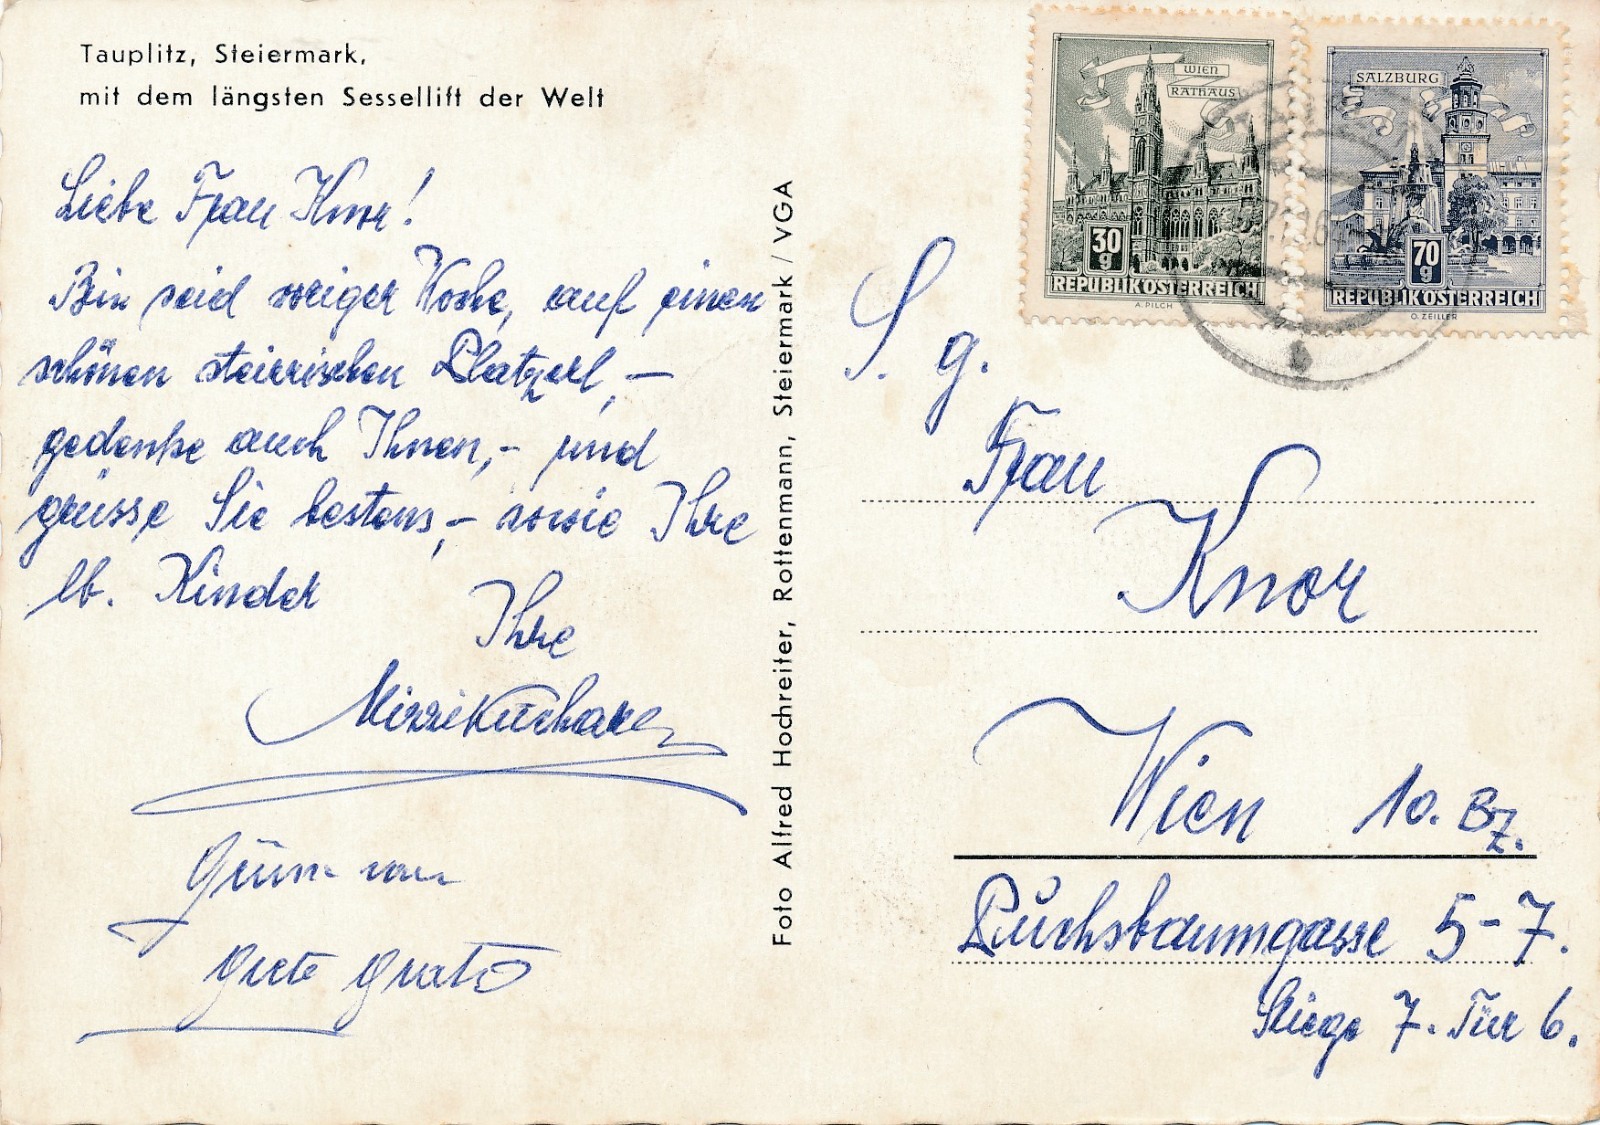 Tauplitz, Steiermark,
mit dem längsten Sessellift der Welt
Liebe Frau Knor!
Bin seid voriger Woche, auf einen
schönen steirischen Platzerl, –
gedenke auch Ihnen, – und
grüsse Sie bestens, – sowie Ihre
lb. Kinder
Ihre
Mizzi
von
Grete
Foto Alfred Hochreiter, Rottenmann, Steiermark / VGA
WIEN
RATHAUS
30
g
REPUBLIK ÖSTERREICH
A. PILCH
SALZBURG
70
g
REPUBLIK ÖSTERREICH
O. ZEILLER
S. g.
Frau
Knor
Wien 10. Bz.
Puchsbaumgasse 5-7.
Stiege 7. Tür 6.